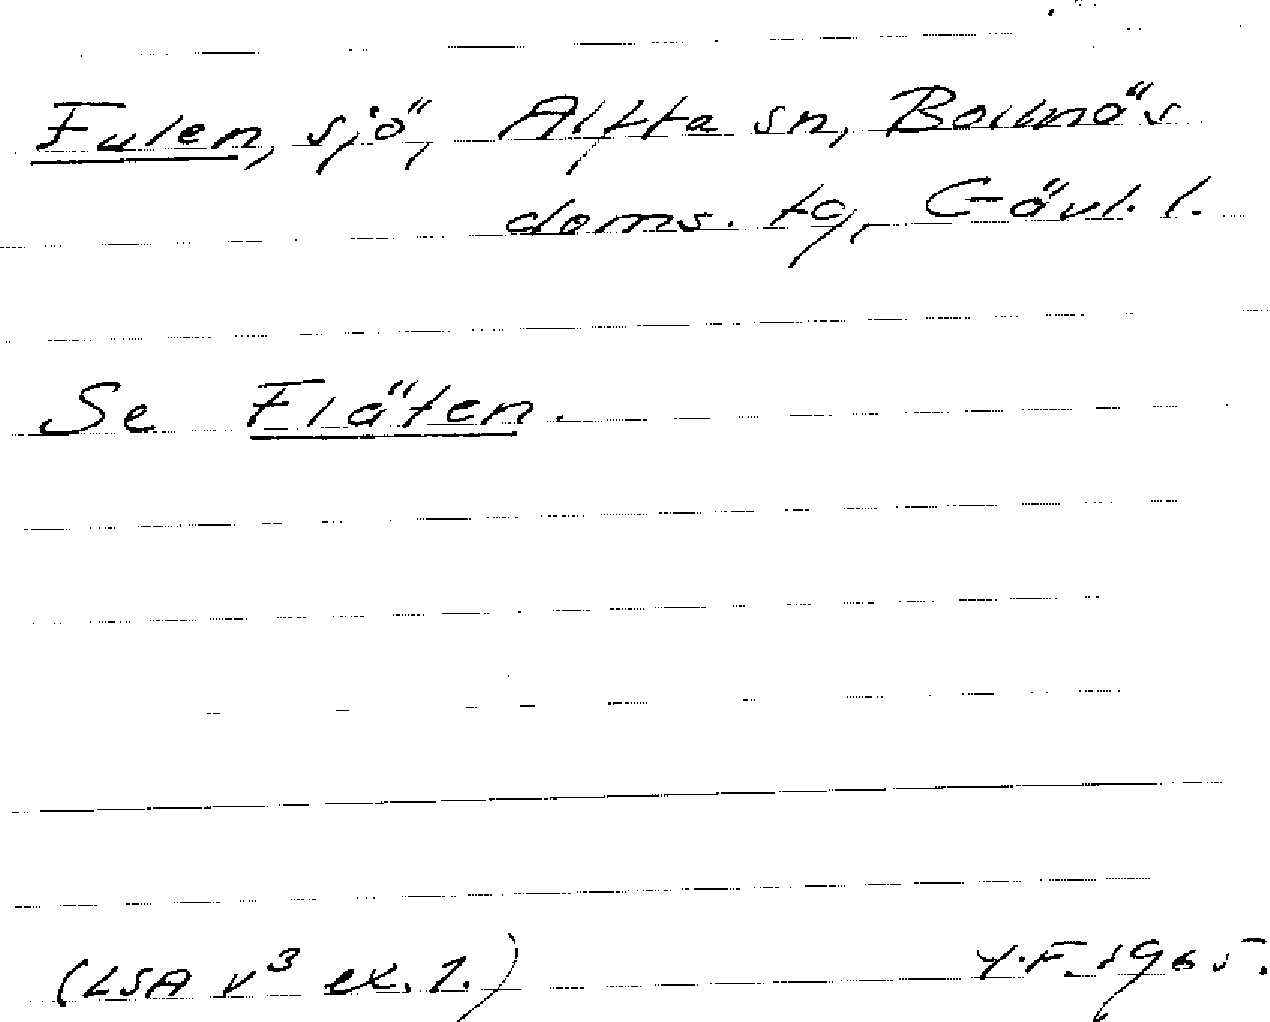 Fulen, sjö, Alfta sn, Bollnäs
doms. tg, Gävl. l.
Se Flåten.
(LSA V³ ex. 2.) Y.F. 1965.